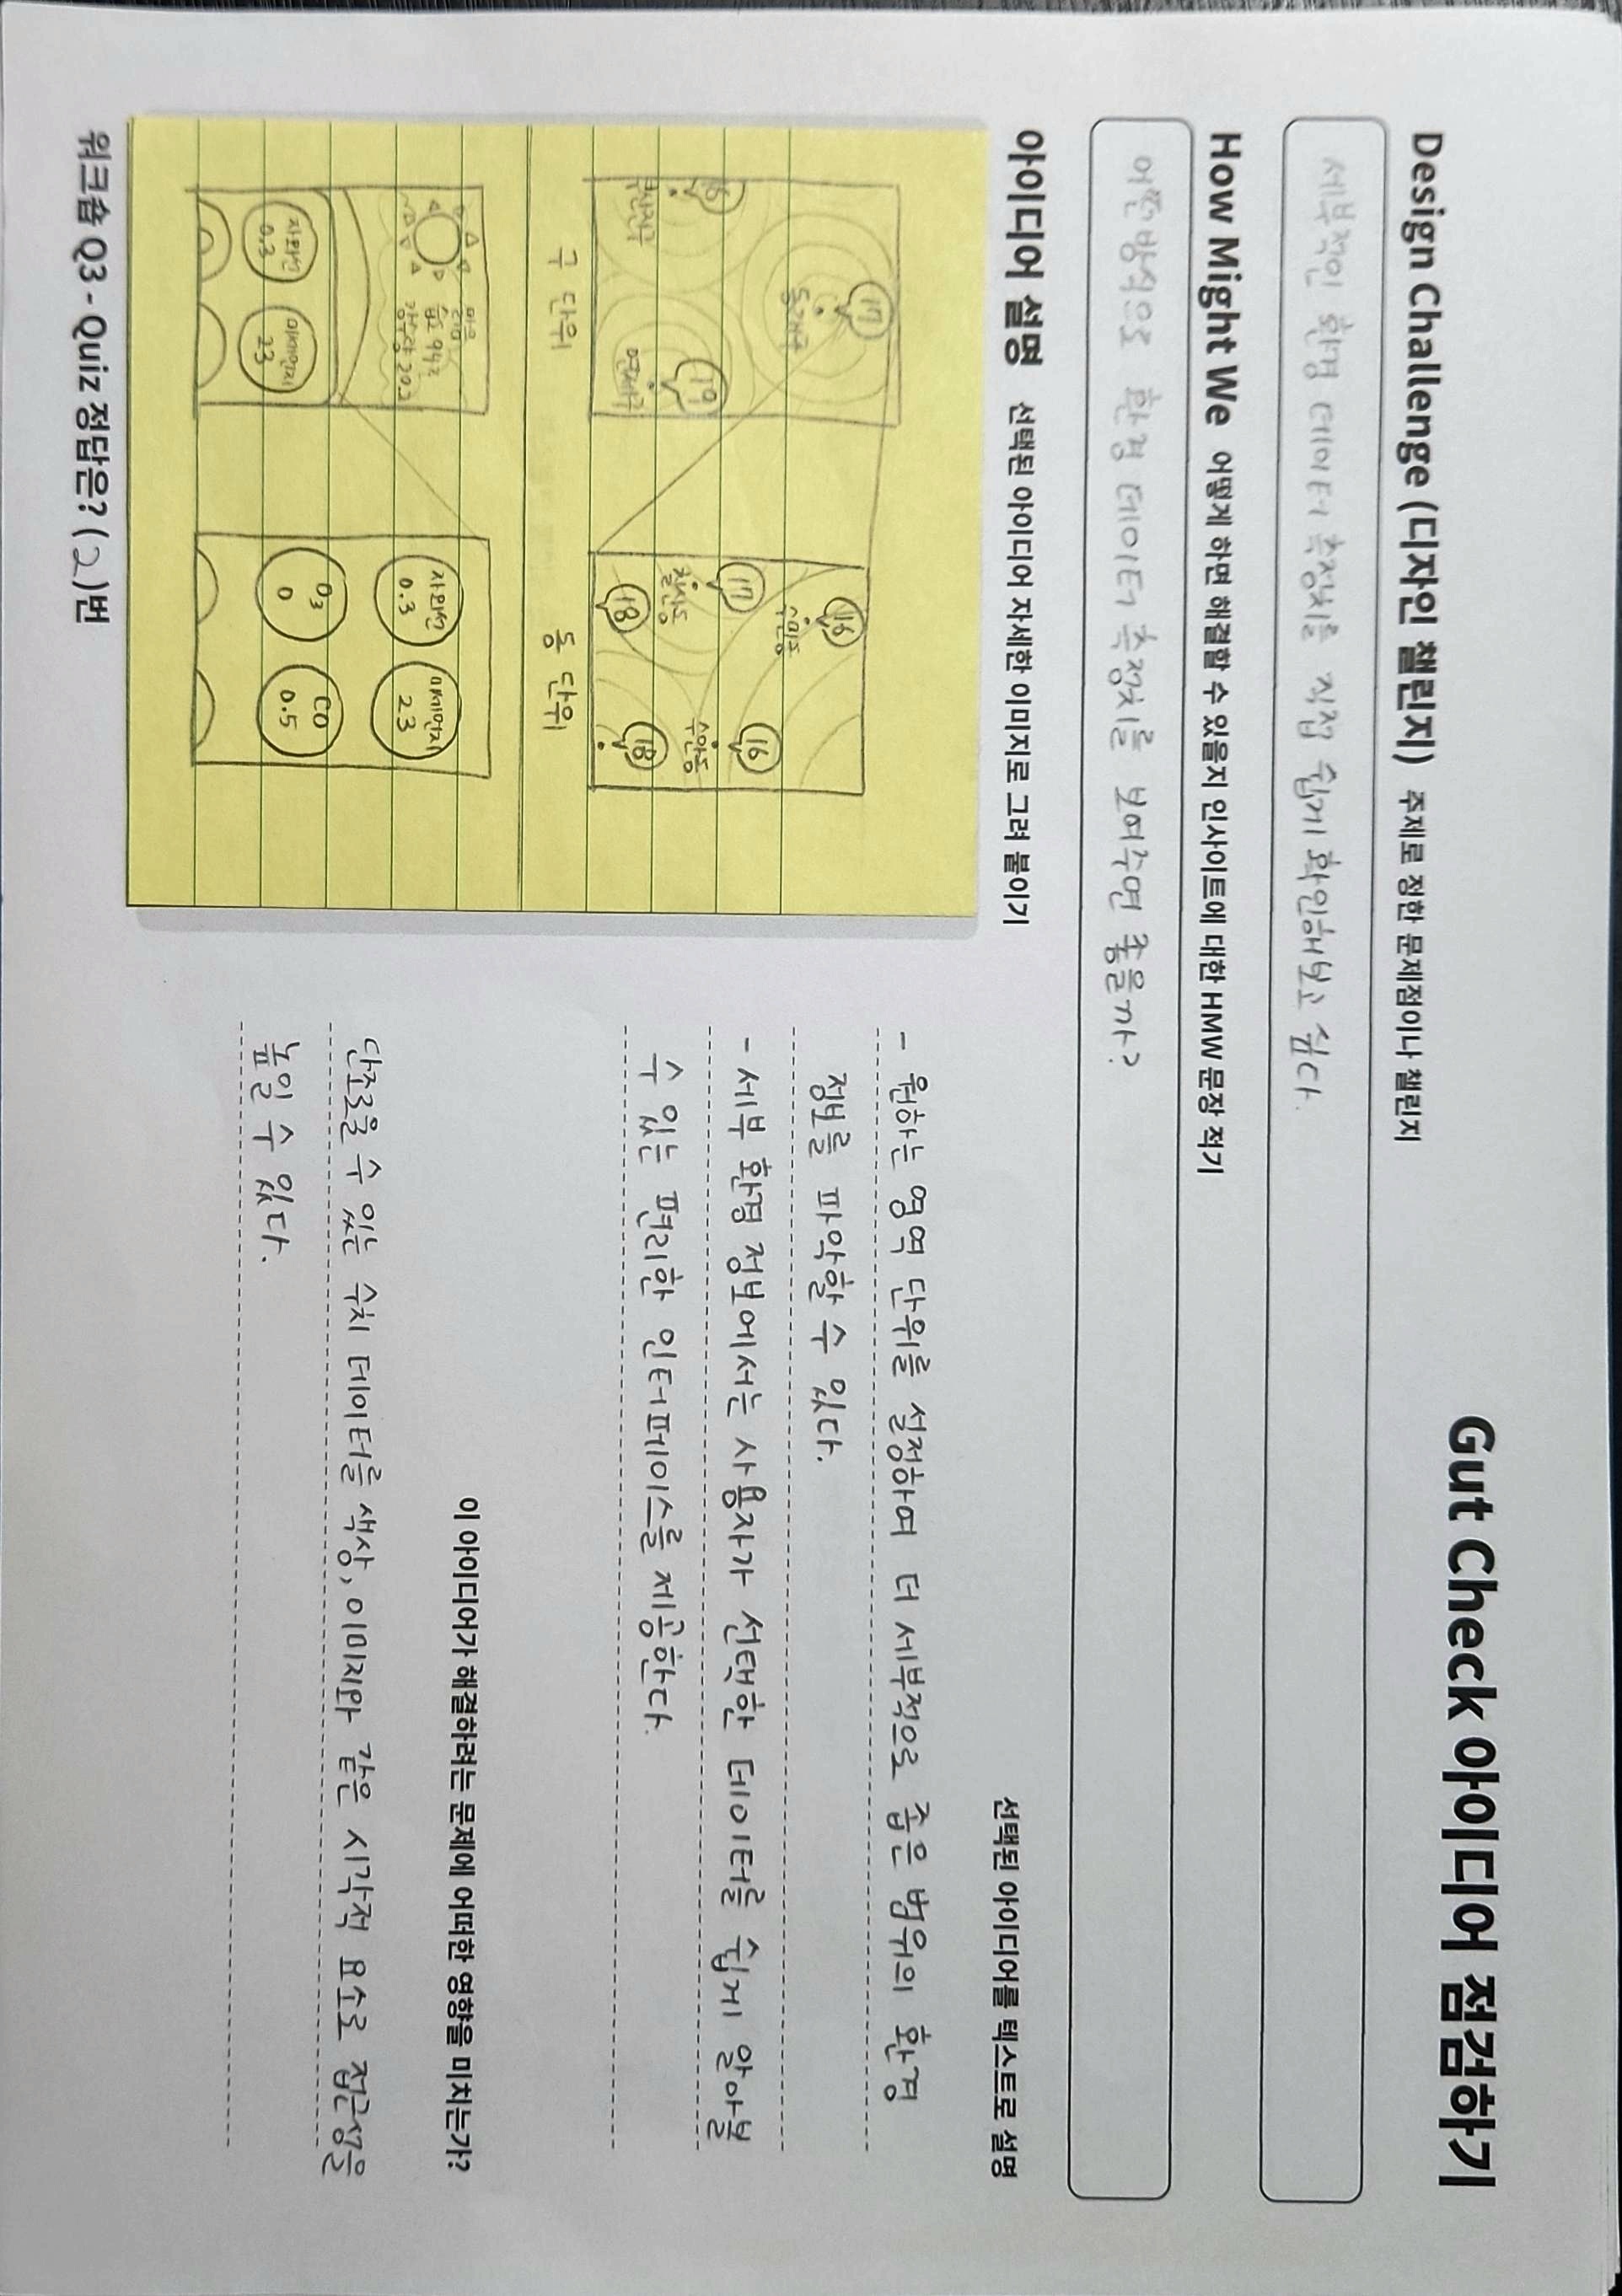 Gut Check 아이디어 점검하기
Design Challenge (디자인 챌린지) 주제로 정한 문제점이나 챌린지
세부적인 환경 데이터 측정치를 직접 쉽게 확인해보고 싶다.
How Might We 어떻게 하면 해결할 수 있을지 인사이트에 대한 HMW 문장 적기
어떤 방식으로 환경 데이터 측정치를 보여주면 좋을까?
아이디어 설명 선택된 아이디어 자세한 이미지로 그려 붙이기
17
동래구
16
부산진구
19
연제구
구 단위
16
수민동
17
칠산동
18
16
수안동
18
동 단위
습도 94%
강수량 20.2
자외선
0.3
미세먼지
23
자외선
0.3
미세먼지
23
O3
0
CO
0.5
선택된 아이디어를 텍스트로 설명
- 원하는 영역 단위를 설정하여 더 세부적으로 좁은 범위의 환경
정보를 파악할 수 있다.
- 세부 환경 정보에서는 사용자가 선택한 데이터를 쉽게 알아볼
수 있는 편리한 인터페이스를 제공한다.
이 아이디어가 해결하려는 문제에 어떠한 영향을 미치는가?
단조로울 수 있는 수치 데이터를 색상, 이미지와 같은 시각적 요소로 접근성을
높일 수 있다.
워크숍 Q3 - Quiz 정답은? ( 2 )번